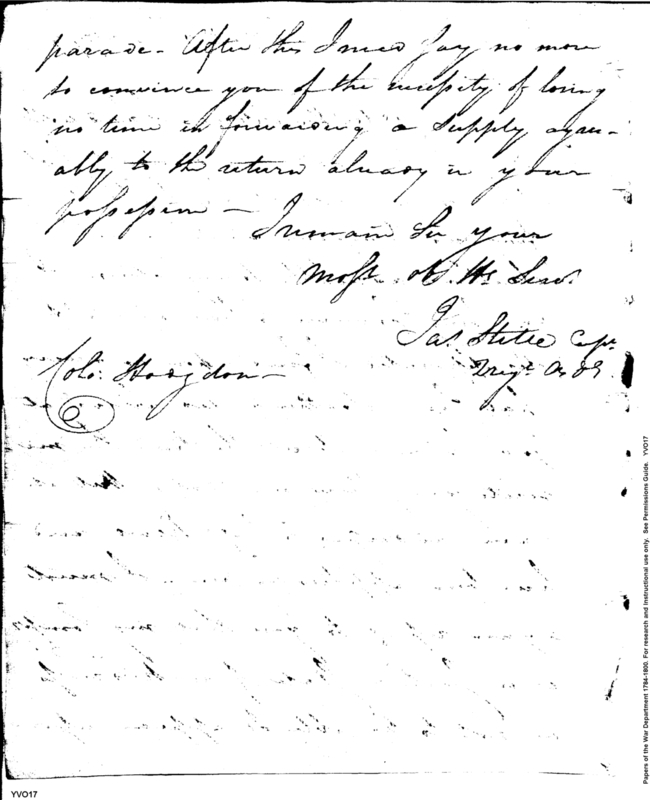 parade - After this I need say no more
to convince you of the necessity of losing
no time in forwarding a supply agree-
ably to the return already in your
possession -
I remain Sir your
Most ob. Hl. Serv.
Jas. Stille Capt.
Colo. Hodgdon -
Papers of the War Department 1784-1800. For research and instructional use only. See Permissions Guide. YVO17
YVO17